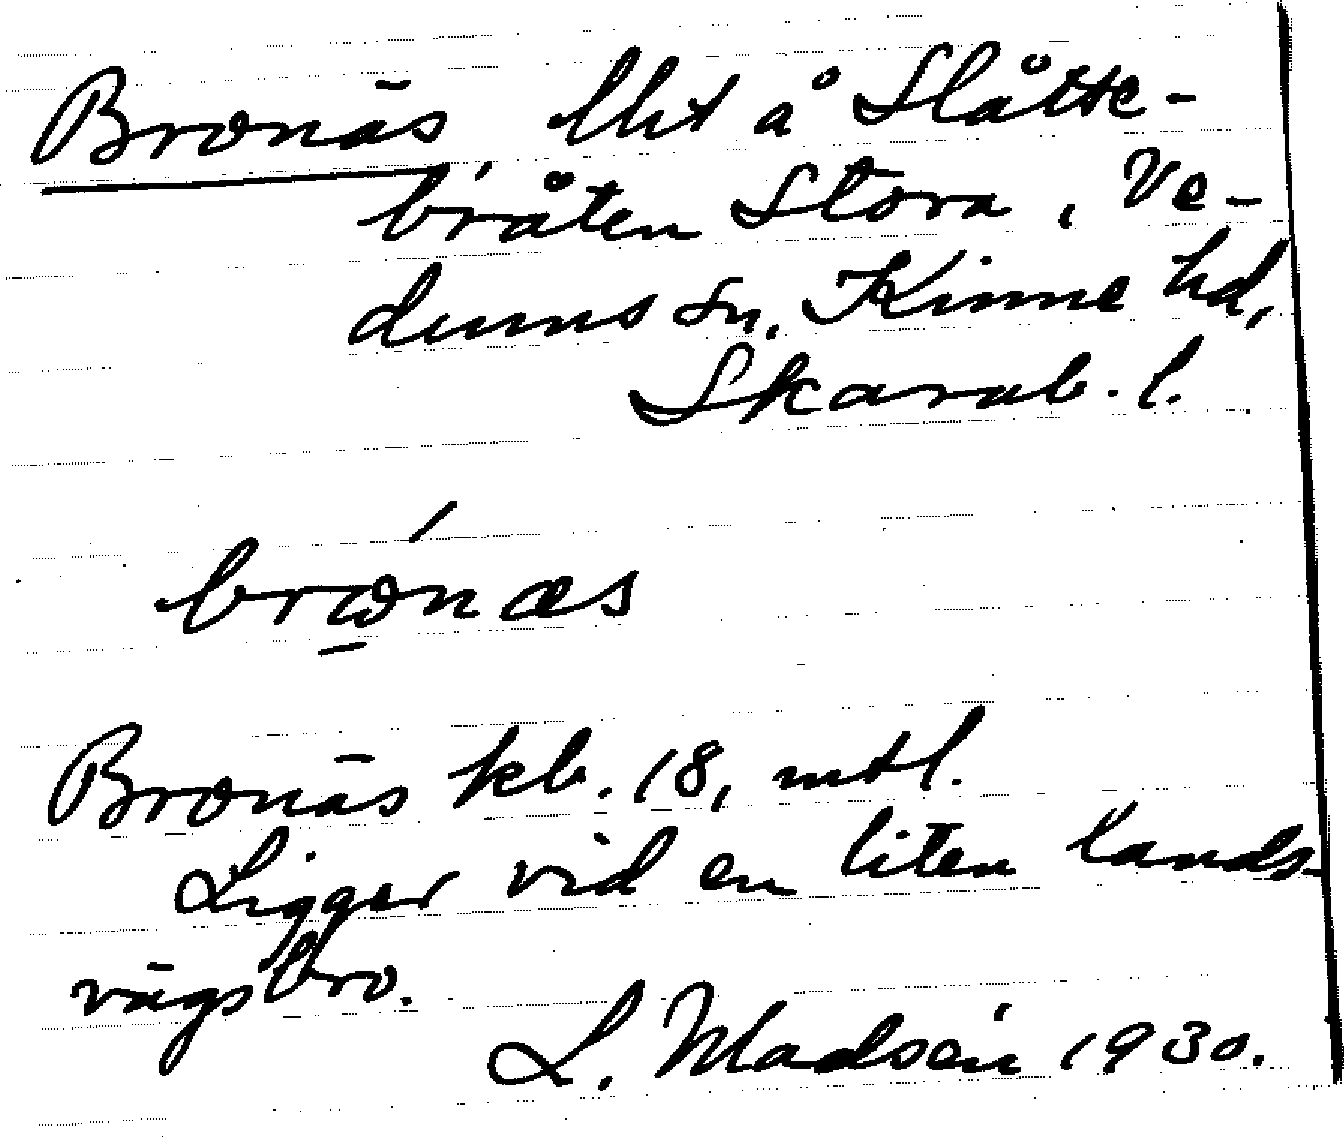 Bronäs llht å Slåtte-
bråten Stora, Ve-
dums sn, Kinne hd,
Skarab. l.
brώ̱næs
Bronäs kb. 18, mtl.
Ligger vid en liten lands-
vägsbro.
L. Madsén 1930.